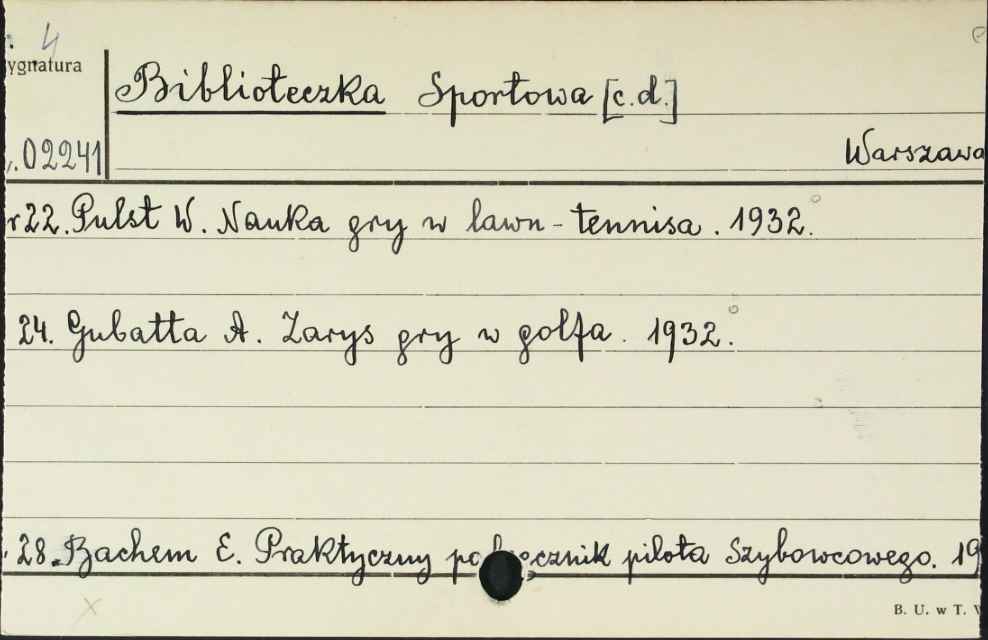 4
ygnatura
Biblioteczka Sportowa [c.d.]
.02241
Warszawa
r 22. Pulst W. Nauka gry w lawn-tennisa. 1932.
24. Gubatta A. Zarys gry w golfa. 1932.
28. Bachem E. Praktyczny podręcznik pilota Szybowcowego. 19
B. U. w T.